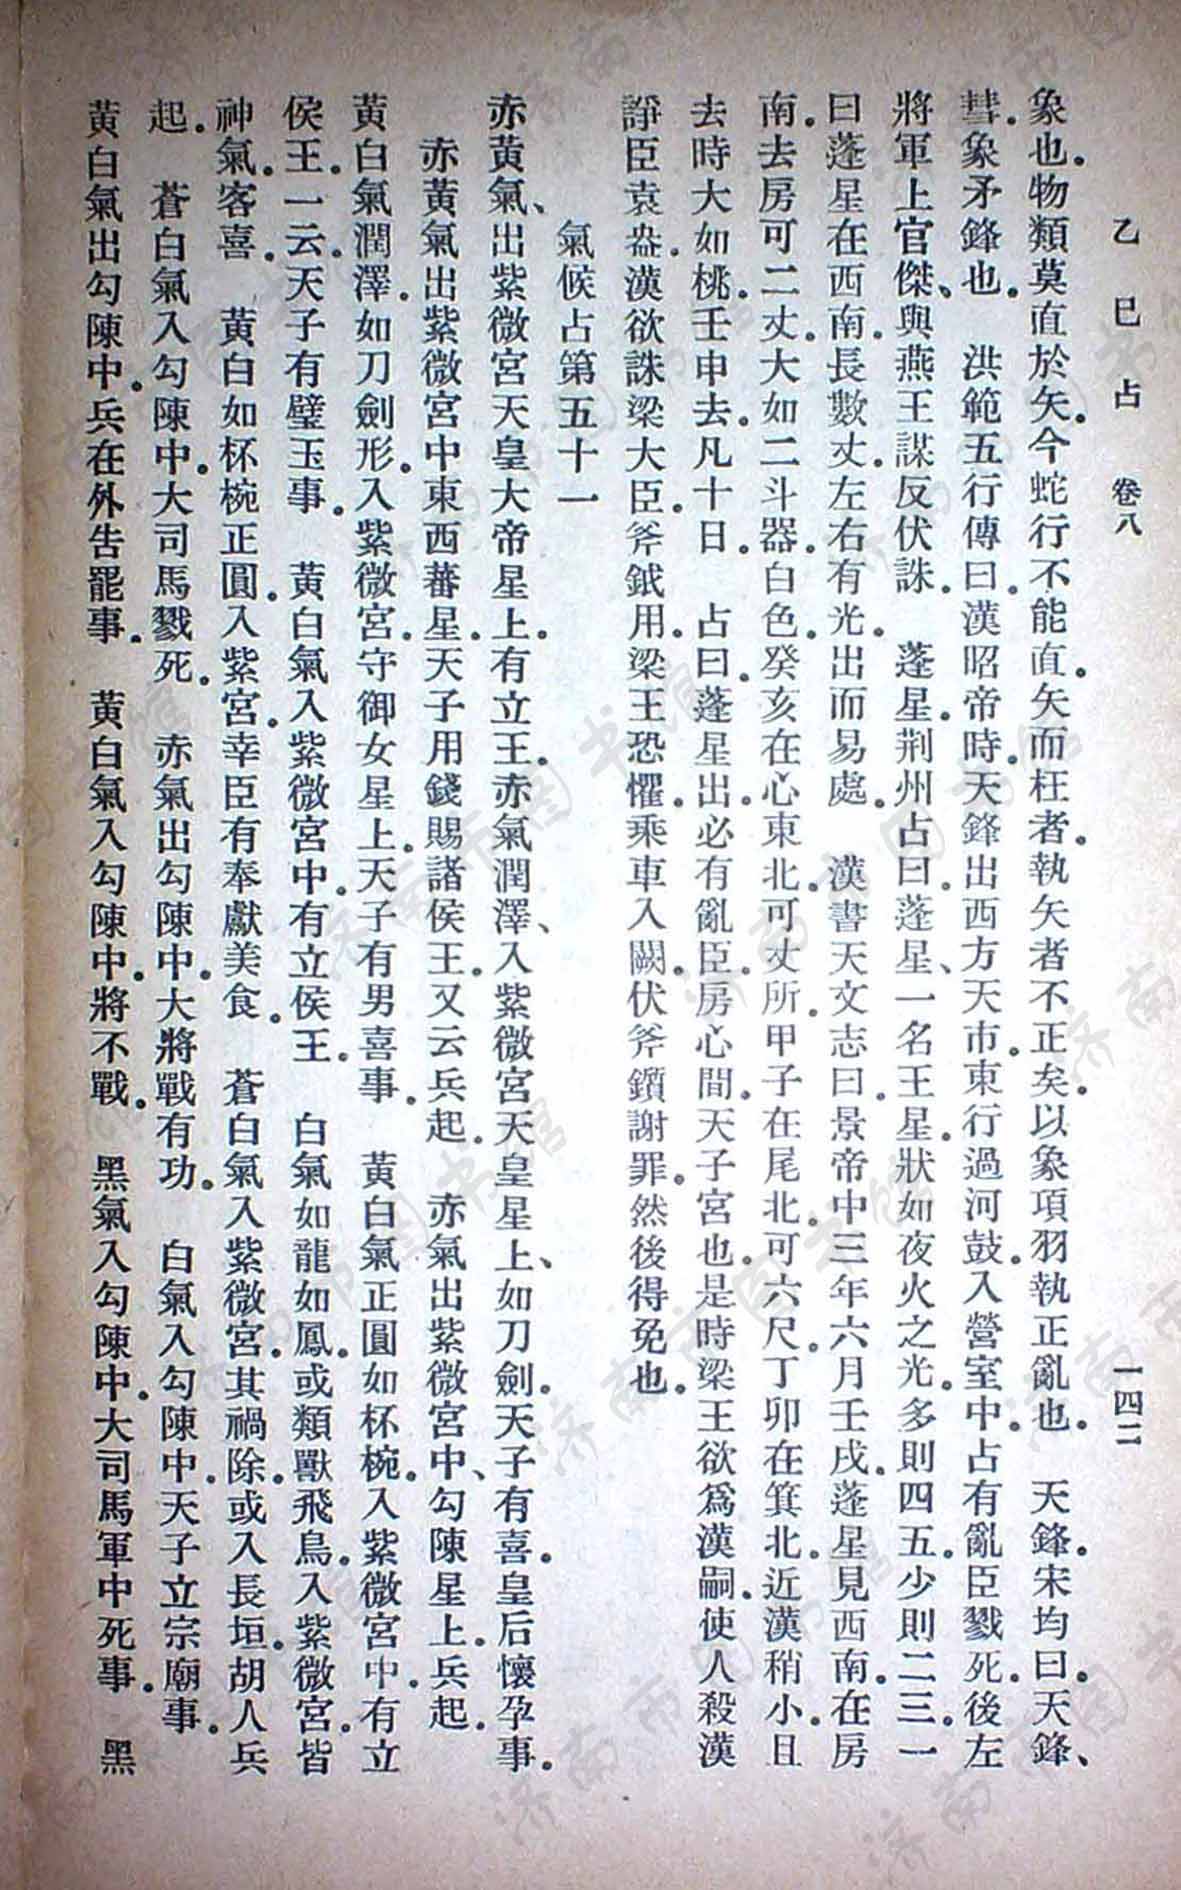 乙巳占 卷八 一四二
象也。物類莫直於矢。今蛇行不能直。矢而枉者。執矢者不正矣。以象項羽執正亂也。　天鋒。宋均曰。天鋒、
彗。象矛鋒也。　洪範五行傳曰。漢昭帝時。天鋒出西方天市。東行過河鼓。入營室中。占有亂臣戮死。後左
將軍上官傑、與燕王謀反伏誅。　蓬星。荆州占曰。蓬星、一名王星。狀如夜火之光。多則四五。少則二三。一
曰蓬星在西南。長數丈。左右有光。出而易處。　漢書天文志曰。景帝中三年六月壬戌。蓬星見西南。在房
南。去房可二丈。大如二斗器。白色。癸亥在心東北。可丈所。甲子在尾北。可六尺。丁卯在箕北。近漢稍小。且
去時大如桃。壬申去。凡十日。　占曰。蓬星出。必有亂臣。房心間。天子宮也。是時梁王欲爲漢嗣。使人殺漢
諍臣袁盎。漢欲誅梁大臣。斧鉞用。梁王恐懼。乘車入闕。伏斧鑕謝罪。然後得免也。
氣候占第五十一
赤黃氣、出紫微宮天皇大帝星上。有立王。赤氣潤澤、入紫微宮天皇星上、如刀劍。天子有喜。皇后懷孕事。
赤黃氣出紫微宮中東西蕃星。天子用錢賜諸侯王。又云兵起。　赤氣出紫微宮中、勾陳星上。兵起。
黃白氣潤澤。如刀劍形。入紫微宮。守御女星上。天子有男喜事。　黃白氣正圓如杯椀。入紫微宮中。有立
侯王。一云。天子有璧玉事。　黃白氣入紫微宮中。有立侯王。　白氣如龍如鳳。或類獸飛鳥。入紫微宮。皆
神氣。客喜。　黃白如杯椀正圓。入紫宮。幸臣有奉獻美食。　蒼白氣入紫微宮。其禍除。或入長垣。胡人兵
起。　蒼白氣入勾陳中。大司馬戮死。　赤氣出勾陳中。大將戰有功。　白氣入勾陳中。天子立宗廟事。
黃白氣出勾陳中。兵在外告罷事。　黃白氣入勾陳中。將不戰。　黑氣入勾陳中。大司馬軍中死事。　黑